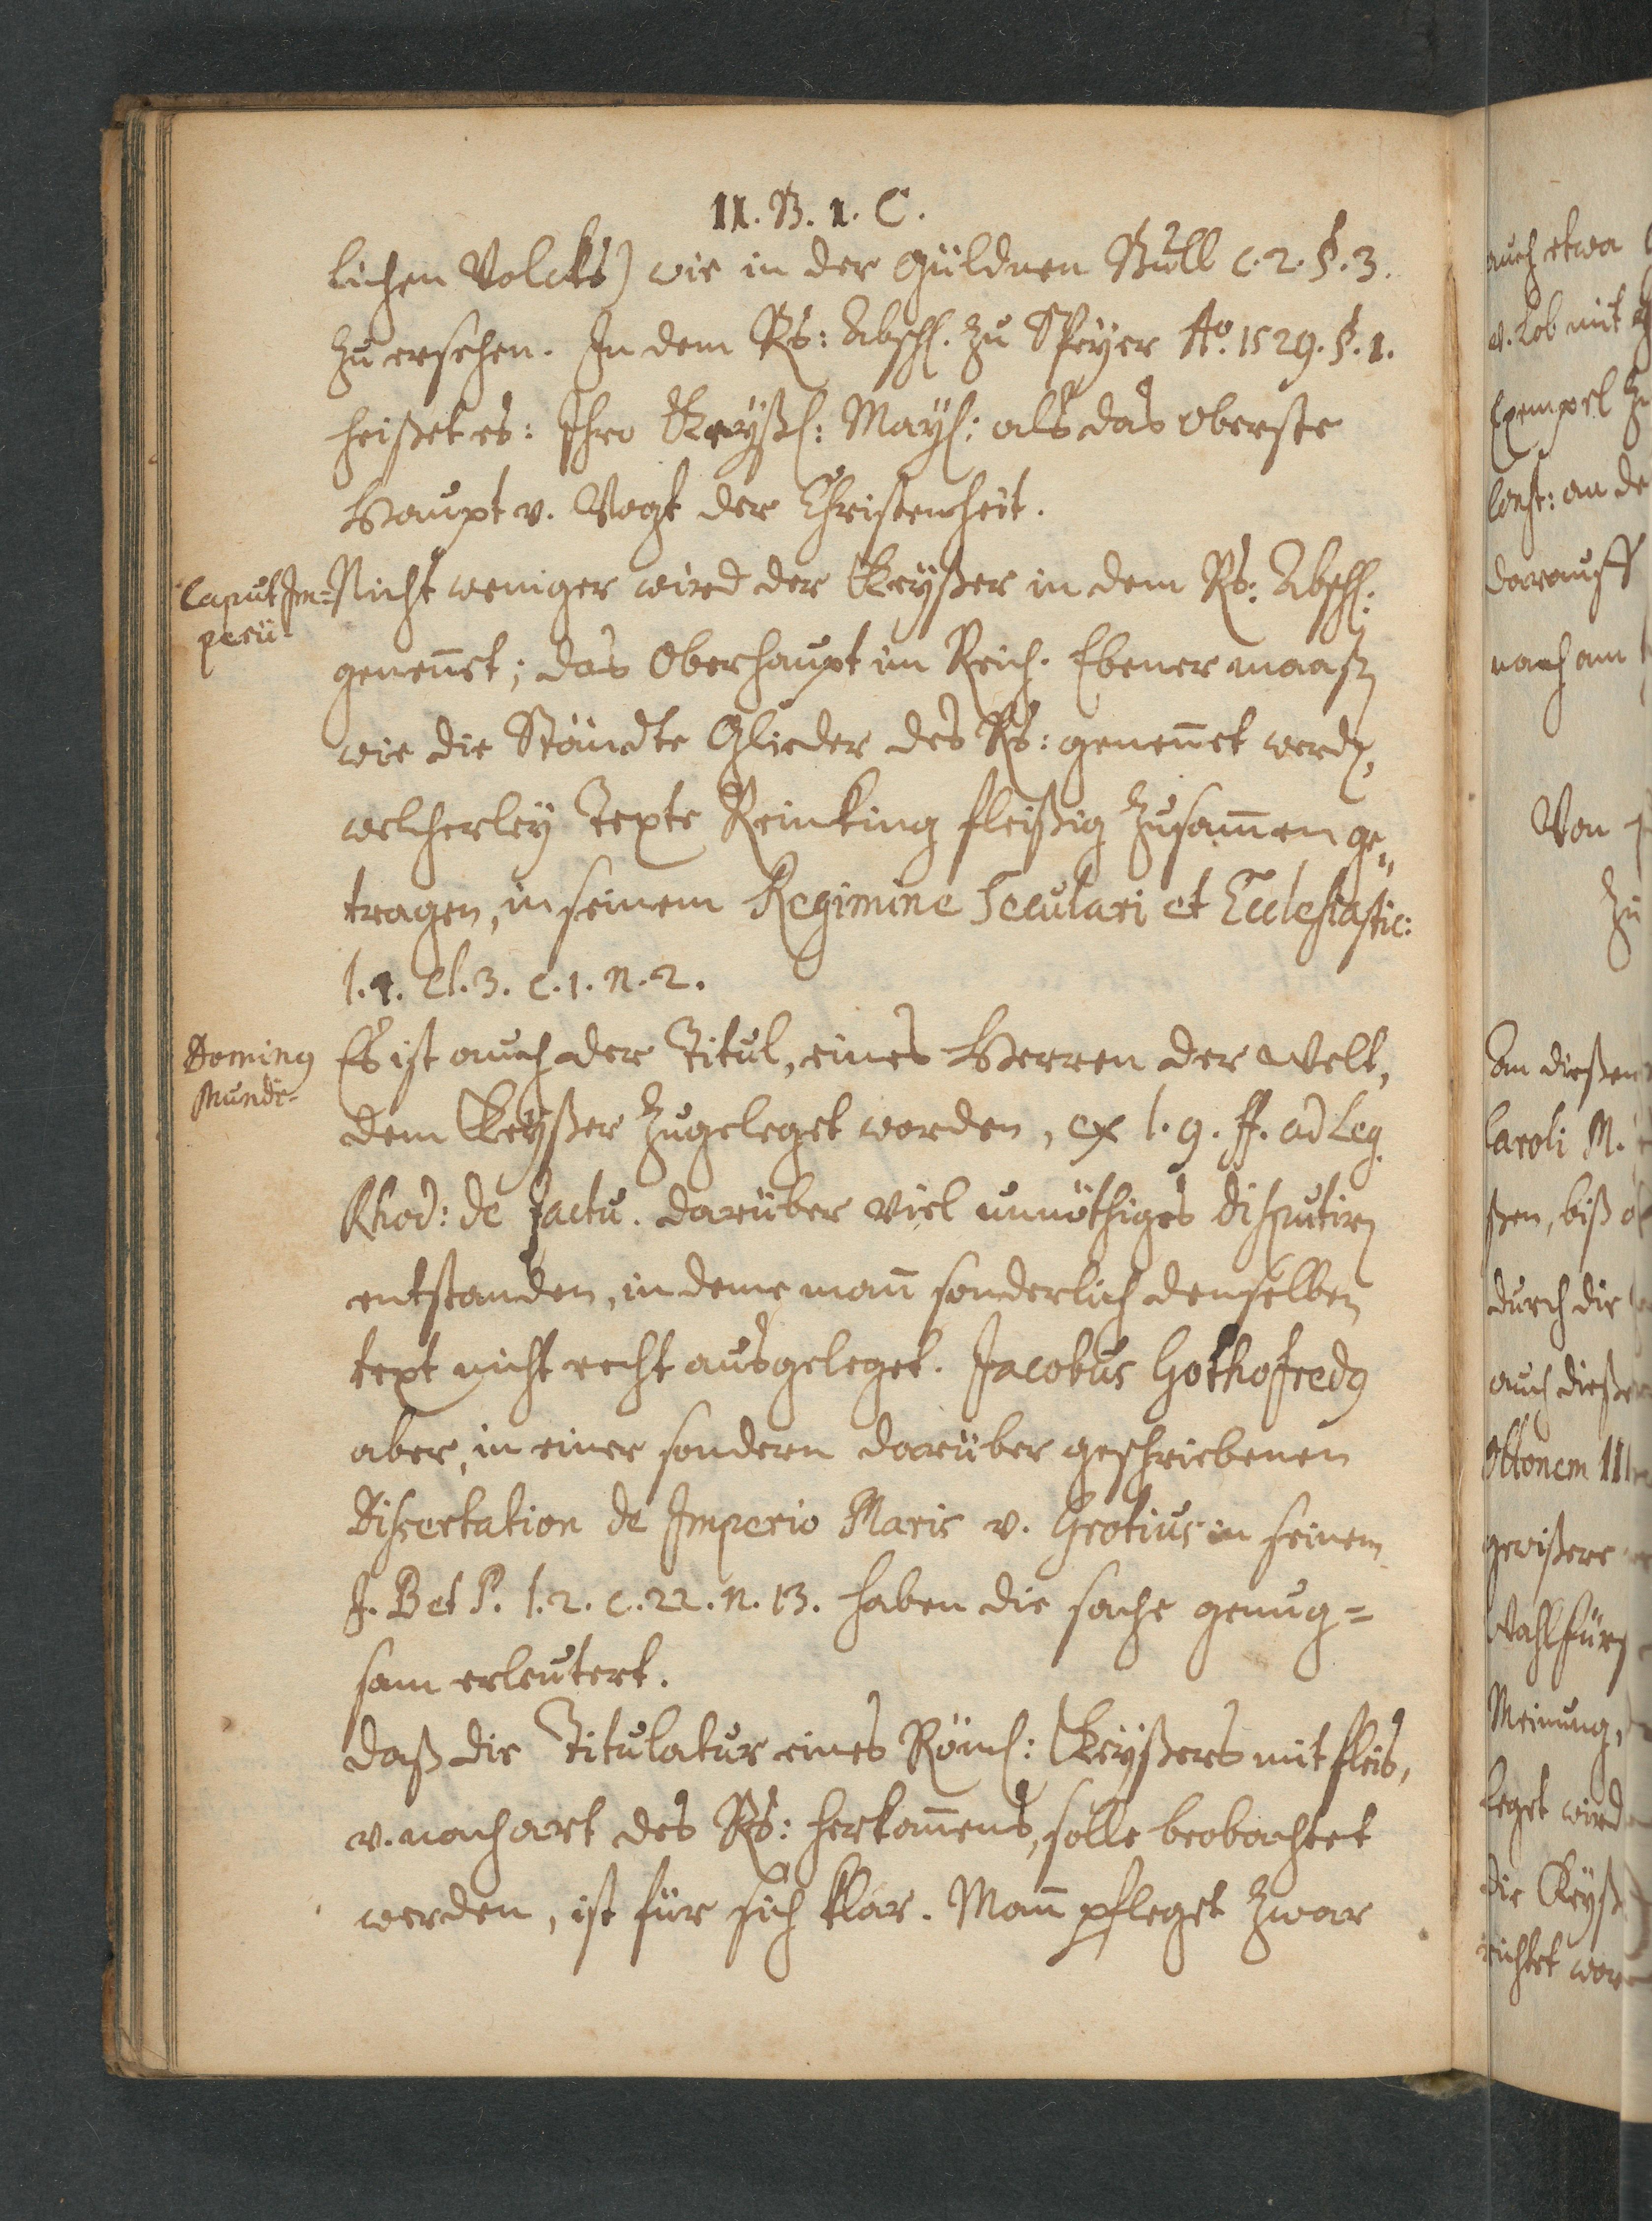 II. B. 1. C.
lichen Volcks) wie in der Güldnen Bull c. 2. §. 3.
zu ersehen. In dem Rs: Absch. zu Speyer Ao. 1529. §. 1.
heißet es: Ihro Keyßl: Mayl: als das oberste
Haupt v. Vogt der Christenheit.
Caput Im=
perii.
Nicht weniger wird der Keyßer in dem Rs: Absch:
genennet; das Oberhaupt im Reich. Ebener maaßen
wie die Ständte Glieder des Rs: genennet werden,
welcherley Texte Reinking fleißig zusammen ge„
tragen, in seinem Regimine Seculari et Ecclesiastic:
l. 1. Cl. 3. c. 1. n. 2.
Dominus
Mundi.
Es ist auch der Titul, eines Herren der Welt,
dem Keyßer zugeleget worden, ex l. 9. ff. ad Leg.
Rhod: de Jactu. darüber viel unnöthiges disputiren
entstanden, in deme mann sonderlich denselben
text nicht recht ausgeleget. Jacobus Gothofredus
aber, in einer sondern darüber geschriebenen
Dissertation de Imperio Maris v. Grotius in seinem
J. B et P. l. 2. c. 22. n. 13. haben die sache genug=
sam erleutert.
daß die Titulatur eines Röml: Keyßers mit fleis,
v. nach art des Rs: herkommens, solle beobachtet
werden, ist für sich klar. Mann pfleget zwar
auch etwa
v. Lob mit
Exempel zu
Const: an de
darauff
nach am
Von
zu
An dießen
Caroli M.
ßen, biß
durch die
auch dieße
Ottonem III
gewißere
Wahlfürs
Meinung,
leget wird
die Keyß
richtet wor